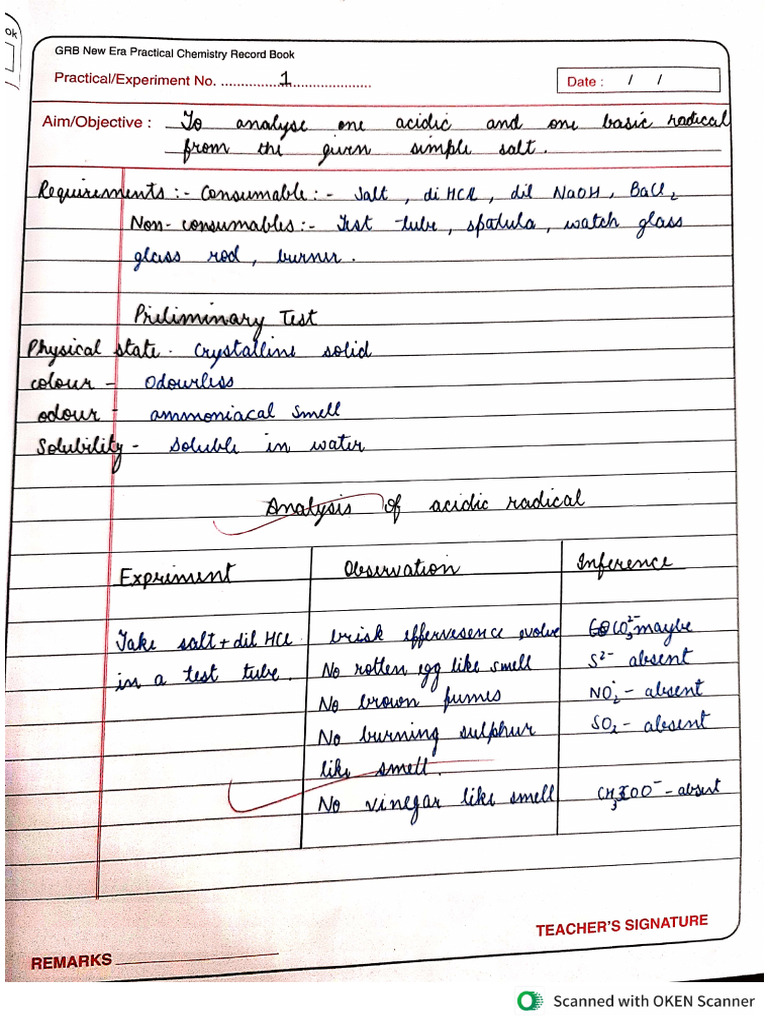 ok
GRB New Era Practical Chemistry Record Book
Practical/Experiment No. ..................1......................
Date : / /
Aim/Objective : To analyse one acidic and one basic radical
from the given simple salt.
Requirements :- Consumable :- Salt , di HCl , dil NaOH , BaCl₂
Non- consumables :- Test tube , spatula , watch glass
glass rod , burner .
Preliminary Test
Physical state - crystalline solid
colour - Odourless
odour - ammoniacal smell
Solubility - soluble in water
Analysis of acidic radical
Expriment Observation Inference
Take salt + dil HCl brisk effervesence evolve CO₃²⁻ maybe
in a test tube. No rotten egg like smell S²⁻ absent
No brown fumes NO₂⁻ - absent
No burning sulphur SO₂ - absent
like smell.
No vinegar like smell CH₃COO⁻ - absent
TEACHER'S SIGNATURE
REMARKS
Scanned with OKEN Scanner